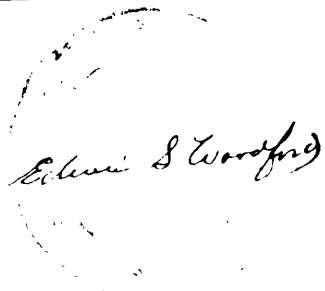 Edwin S Woodford